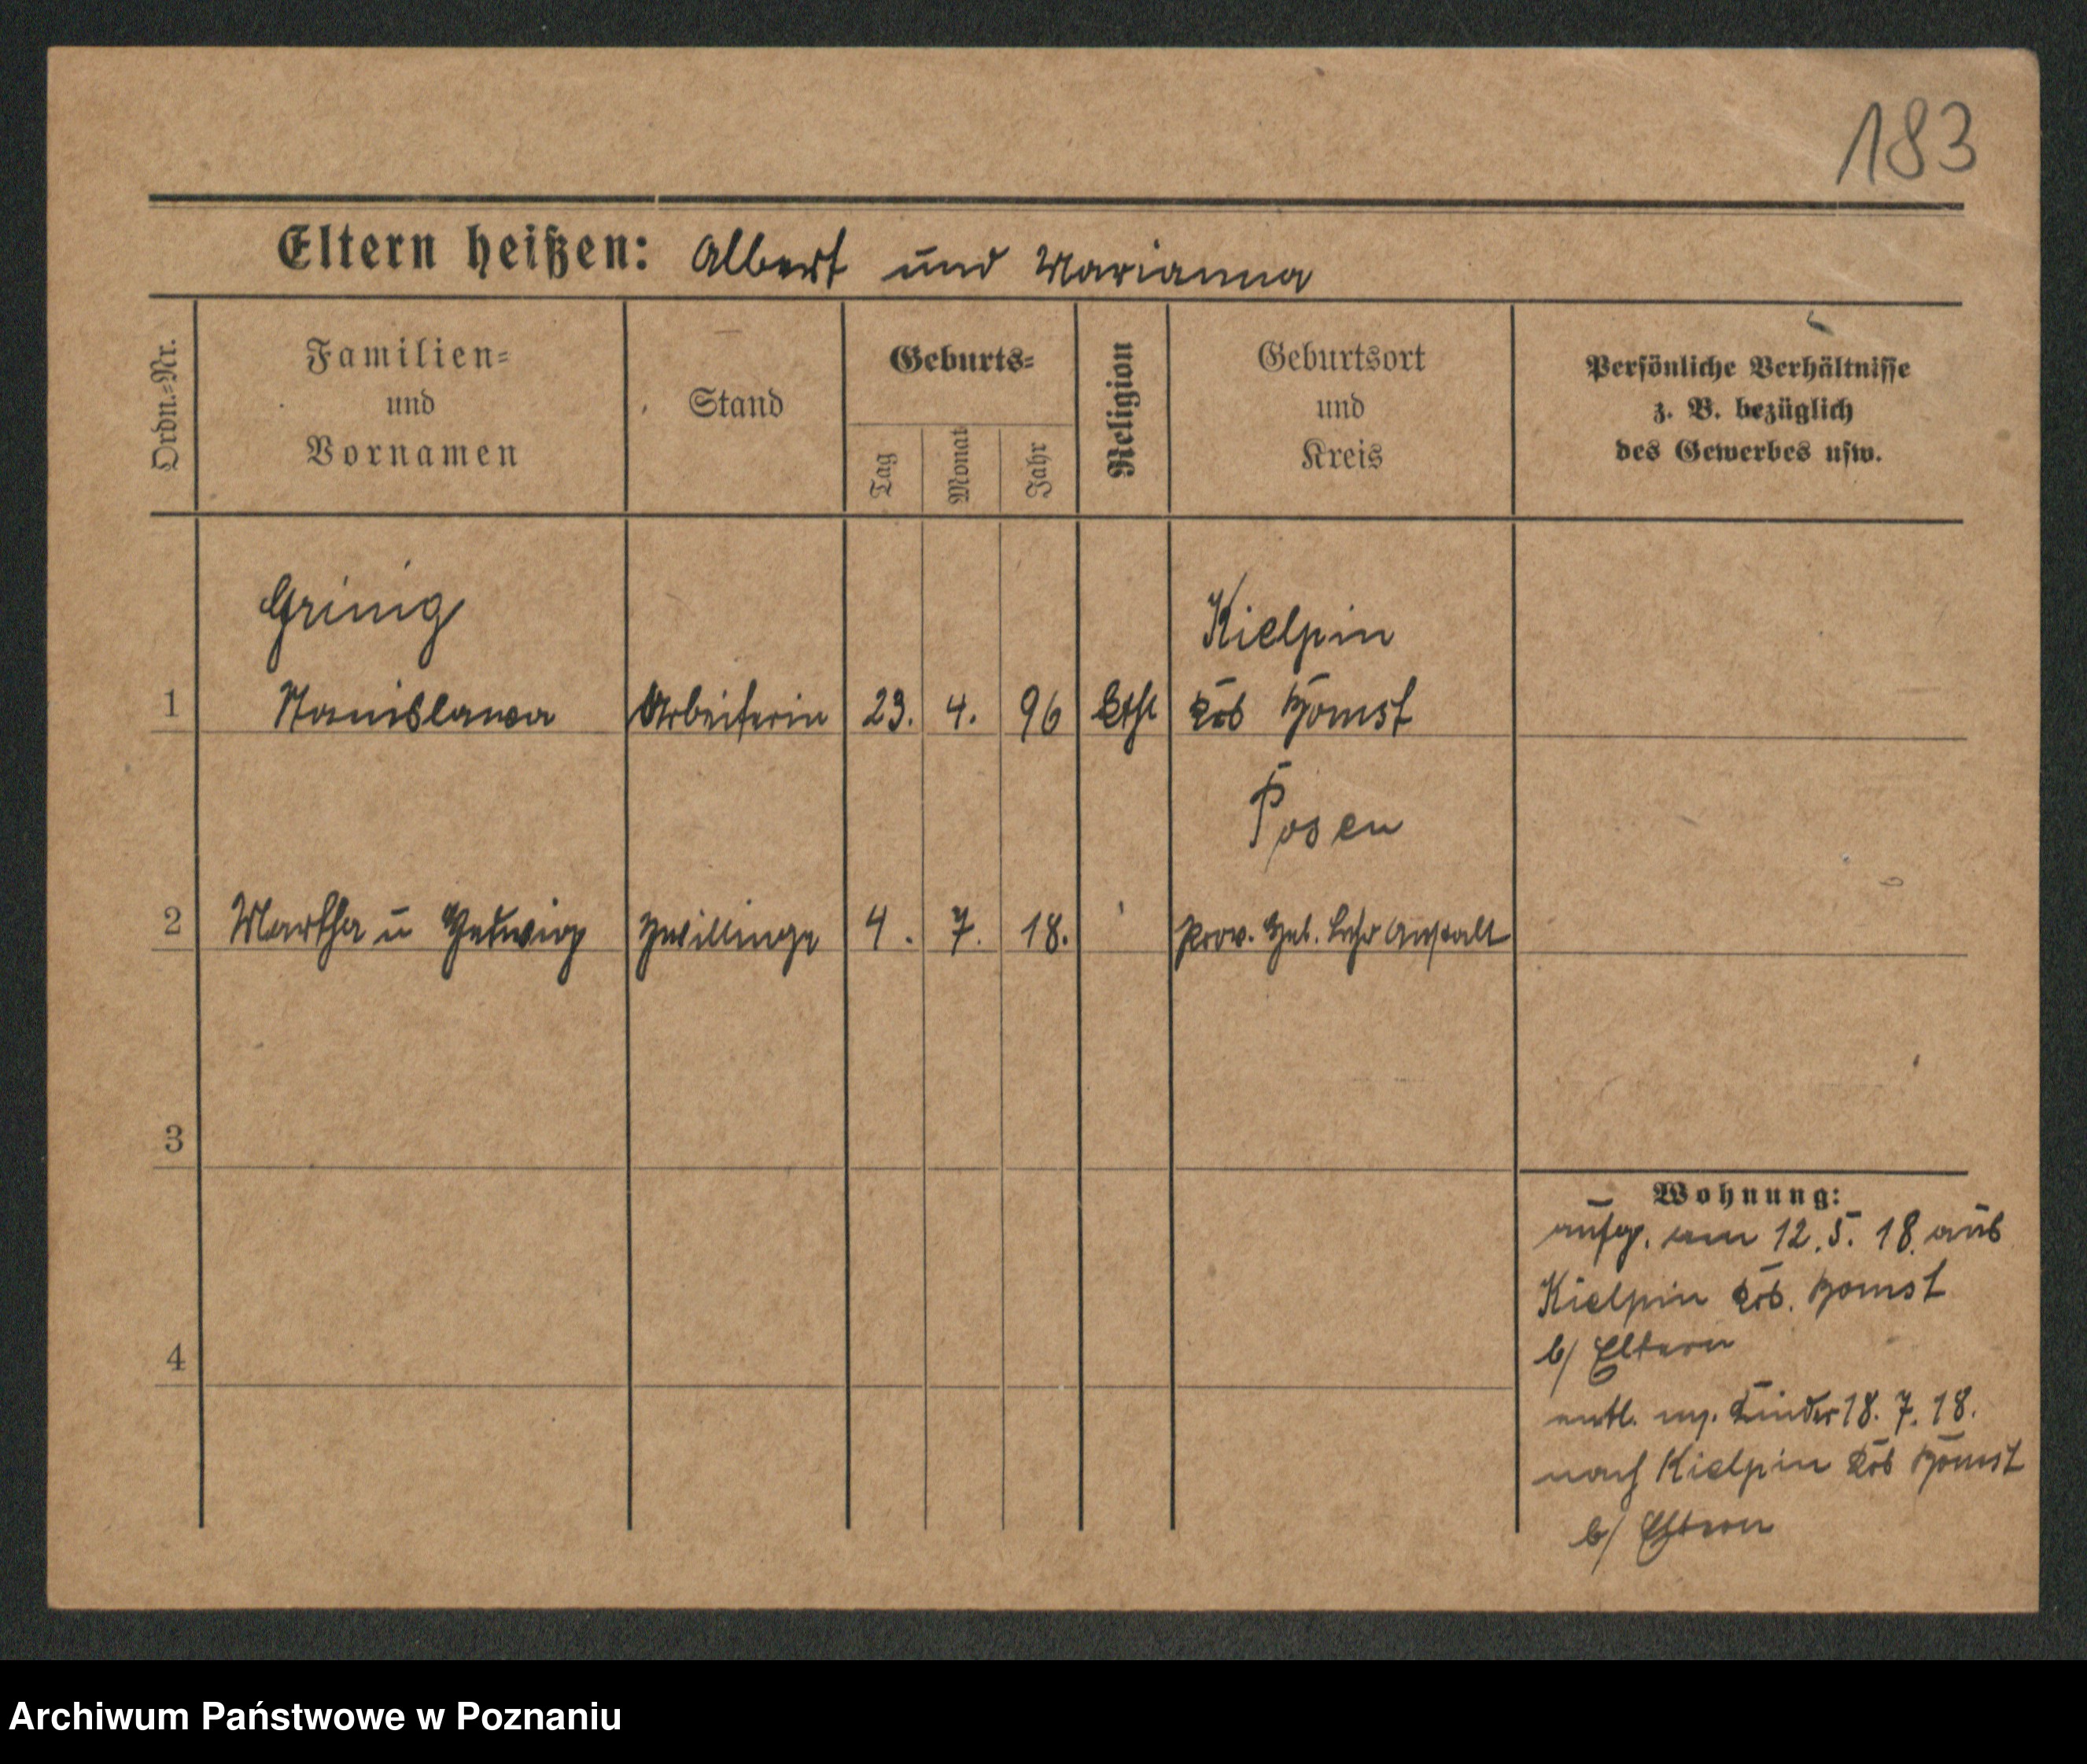 183
Eltern heißen: Albert und Marianna
Ordn.-Nr.
Familien-
und
Vornamen
Stand
Geburts-
Tag
Monat
Jahr
Religion
Geburtsort
und
Kreis
Persönliche Verhältnisse
z. B. bezüglich
des Gewerbes usw.
Kielpin
1 Stanislawa Arbeiterin 23. 4. 96 kth Krs Bomst
Posen
2 Martha u Hedwig Zwillinge 4. 7. 18. Prov. Heb. Lehr Anstalt
3
4
Wohnung:
aufg. am 12.5. 18. aus
Kielpin Krs. Bomst
b/ Eltern
entl. m. Kinder 18. 7. 18.
nach Kielpin Krs Bomst
b/ Eltern
Archiwum Państwowe w Poznaniu